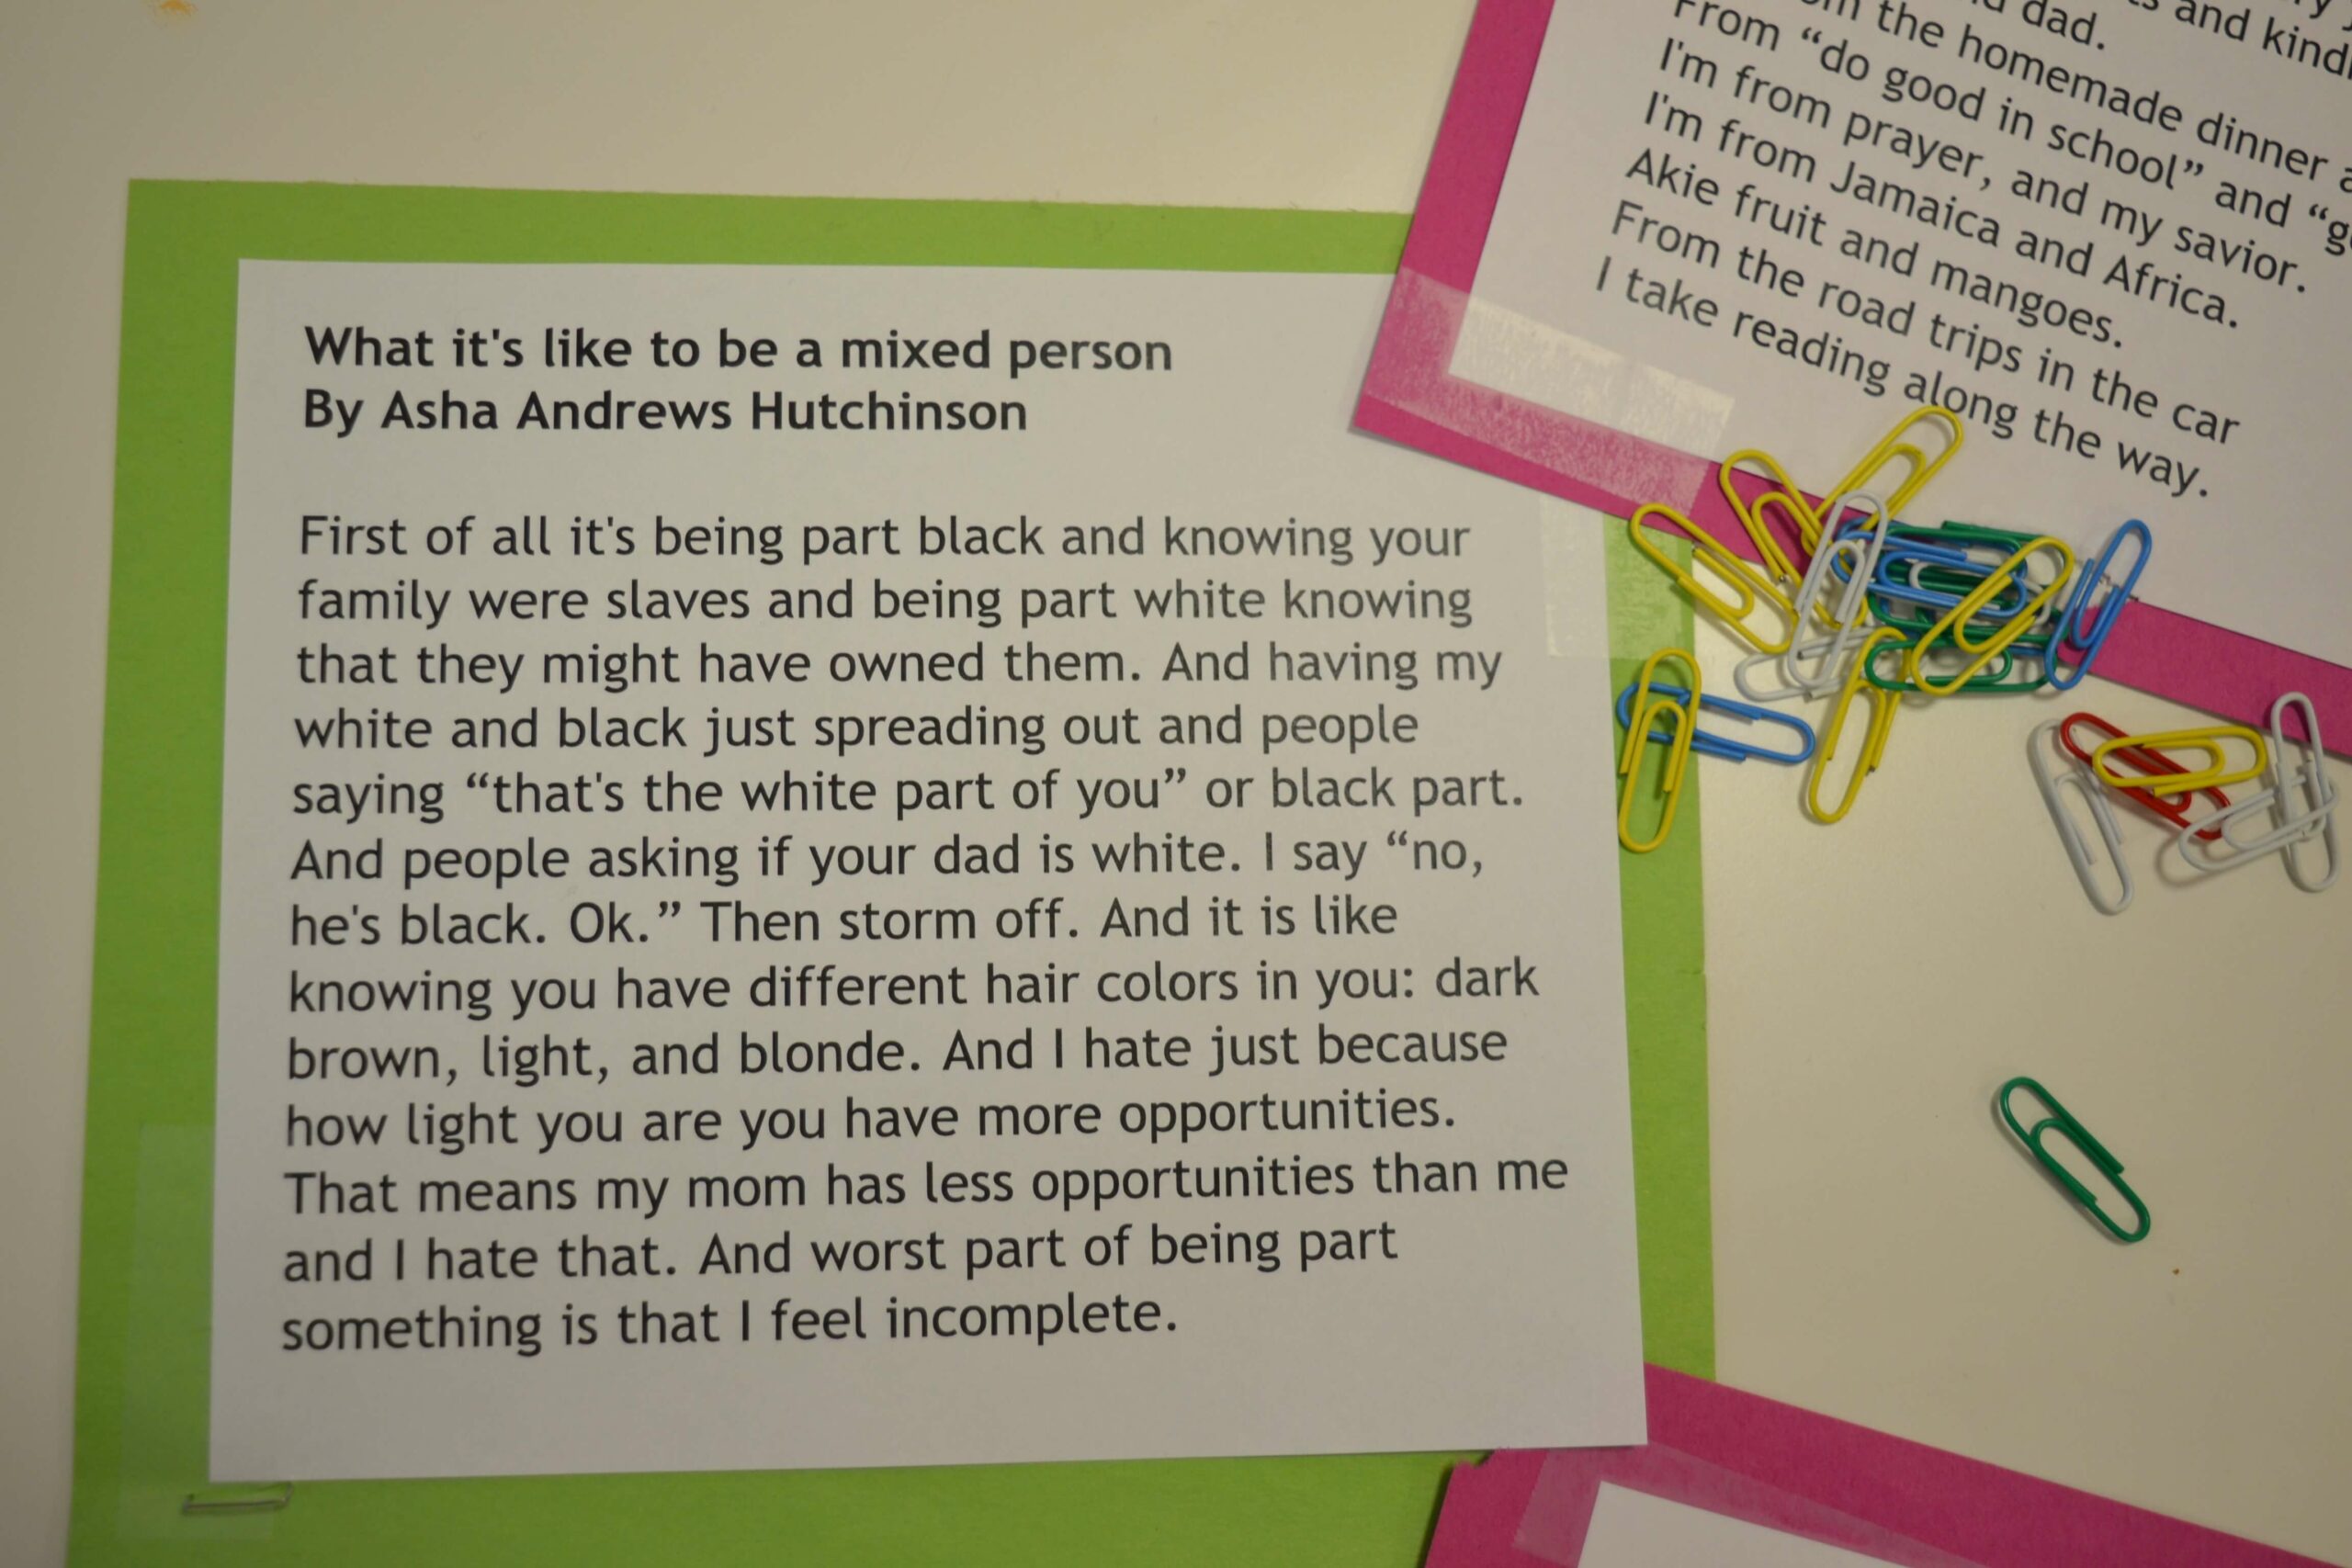 What it's like to be a mixed person
By Asha Andrews Hutchinson
First of all it's being part black and knowing your
family were slaves and being part white knowing
that they might have owned them. And having my
white and black just spreading out and people
saying “that's the white part of you” or black part.
And people asking if your dad is white. I say “no,
he's black. Ok.” Then storm off. And it is like
knowing you have different hair colors in you: dark
brown, light, and blonde. And I hate just because
how light you are you have more opportunities.
That means my mom has less opportunities than me
and I hate that. And worst part of being part
something is that I feel incomplete.
and
dad.
the homemade dinner
From “do good in school” and
I'm from prayer, and my savior.
I'm from Jamaica and Africa.
Akie fruit and mangoes.
From the road trips in the car
I take reading along the way.